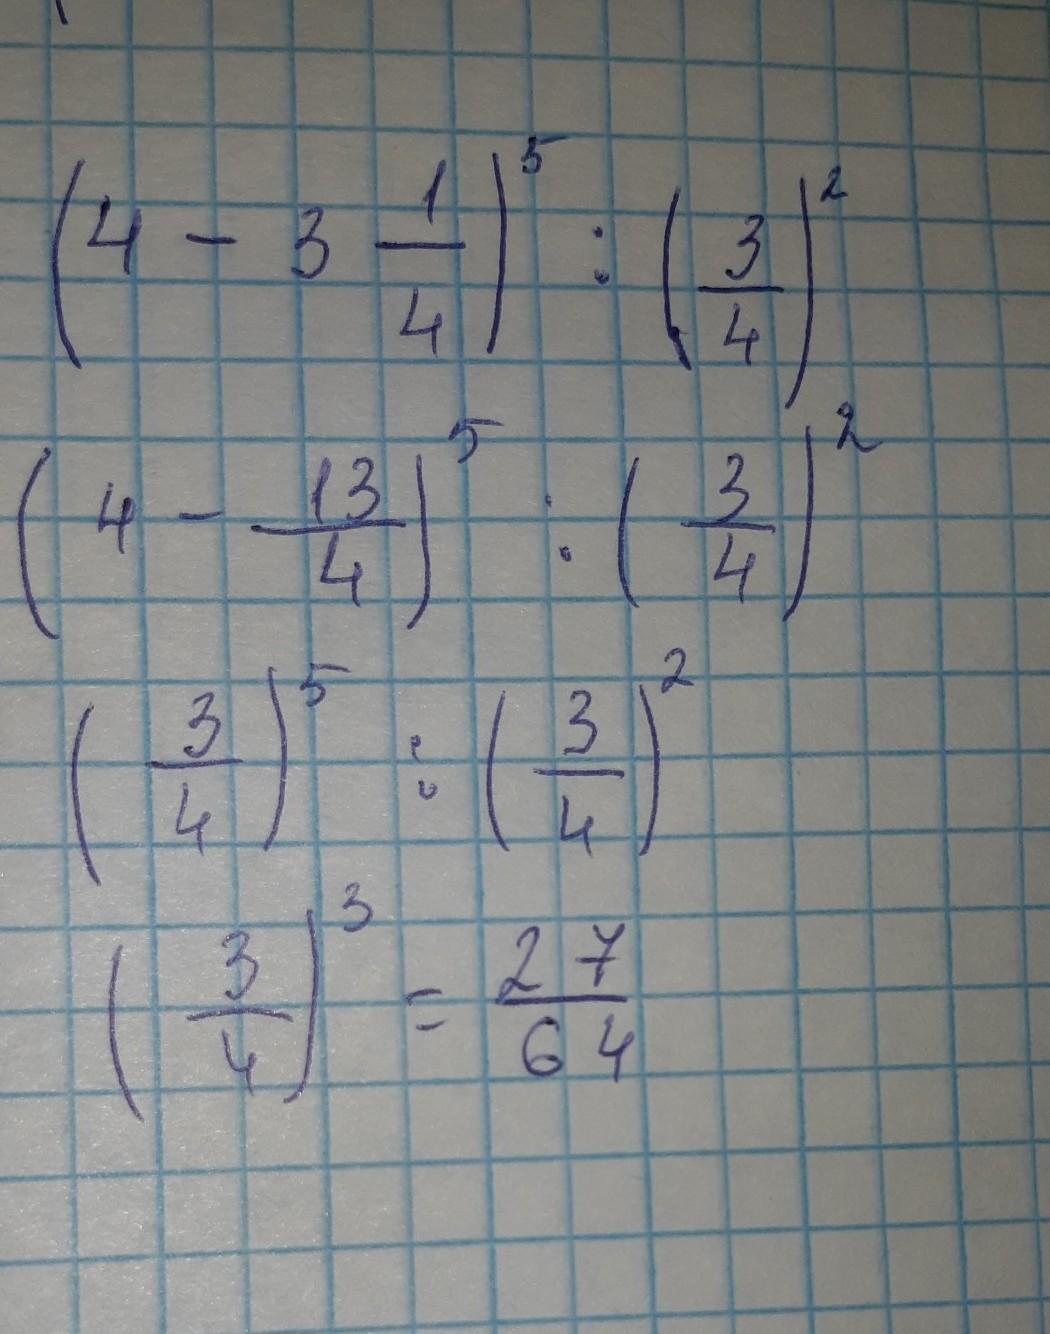 (4 - 3 1/4)^5 : (3/4)^2
(4 - 13/4)^5 : (3/4)^2
(3/4)^5 : (3/4)^2
(3/4)^3 = 27/64